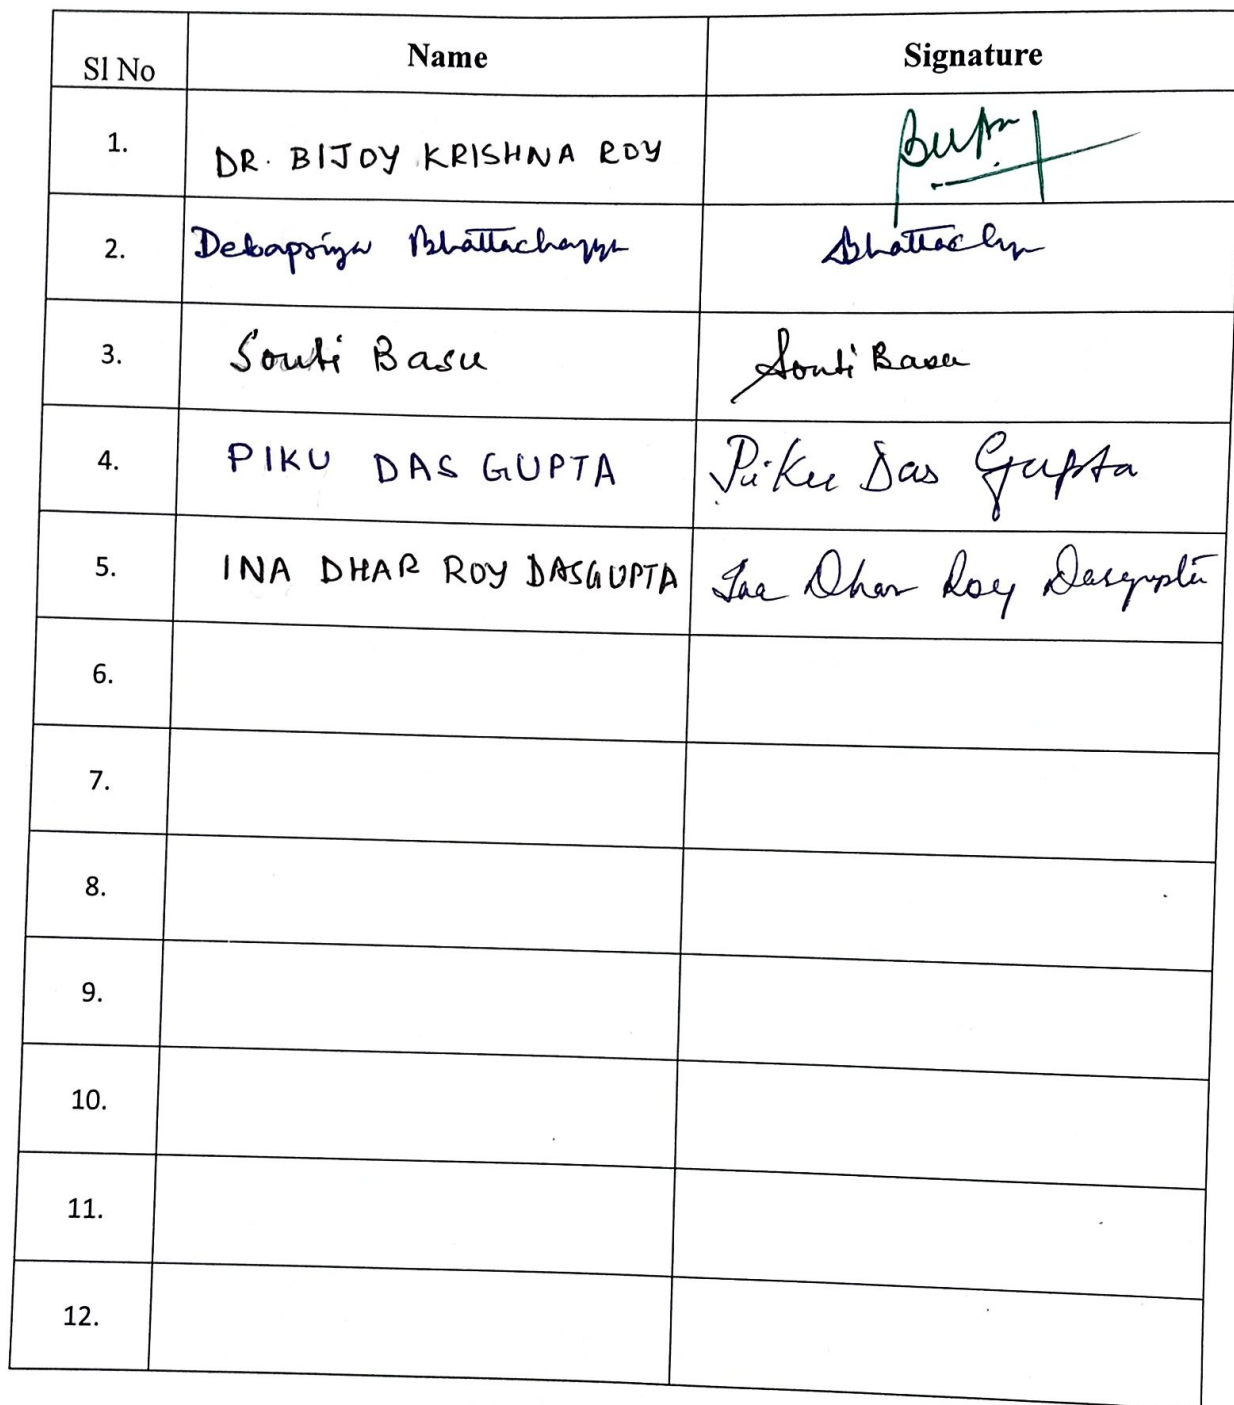 Sl No Name Signature
1. DR. BIJOY KRISHNA ROY
2. Debapriya Bhattacharyya
3. Souti Basu Souti Basu
4. PIKU DAS GUPTA Piku Das Gupta
5. INA DHAR ROY DASGUPTA Ina Dhar Roy Dasgupta
6.
7.
8.
9.
10.
11.
12.